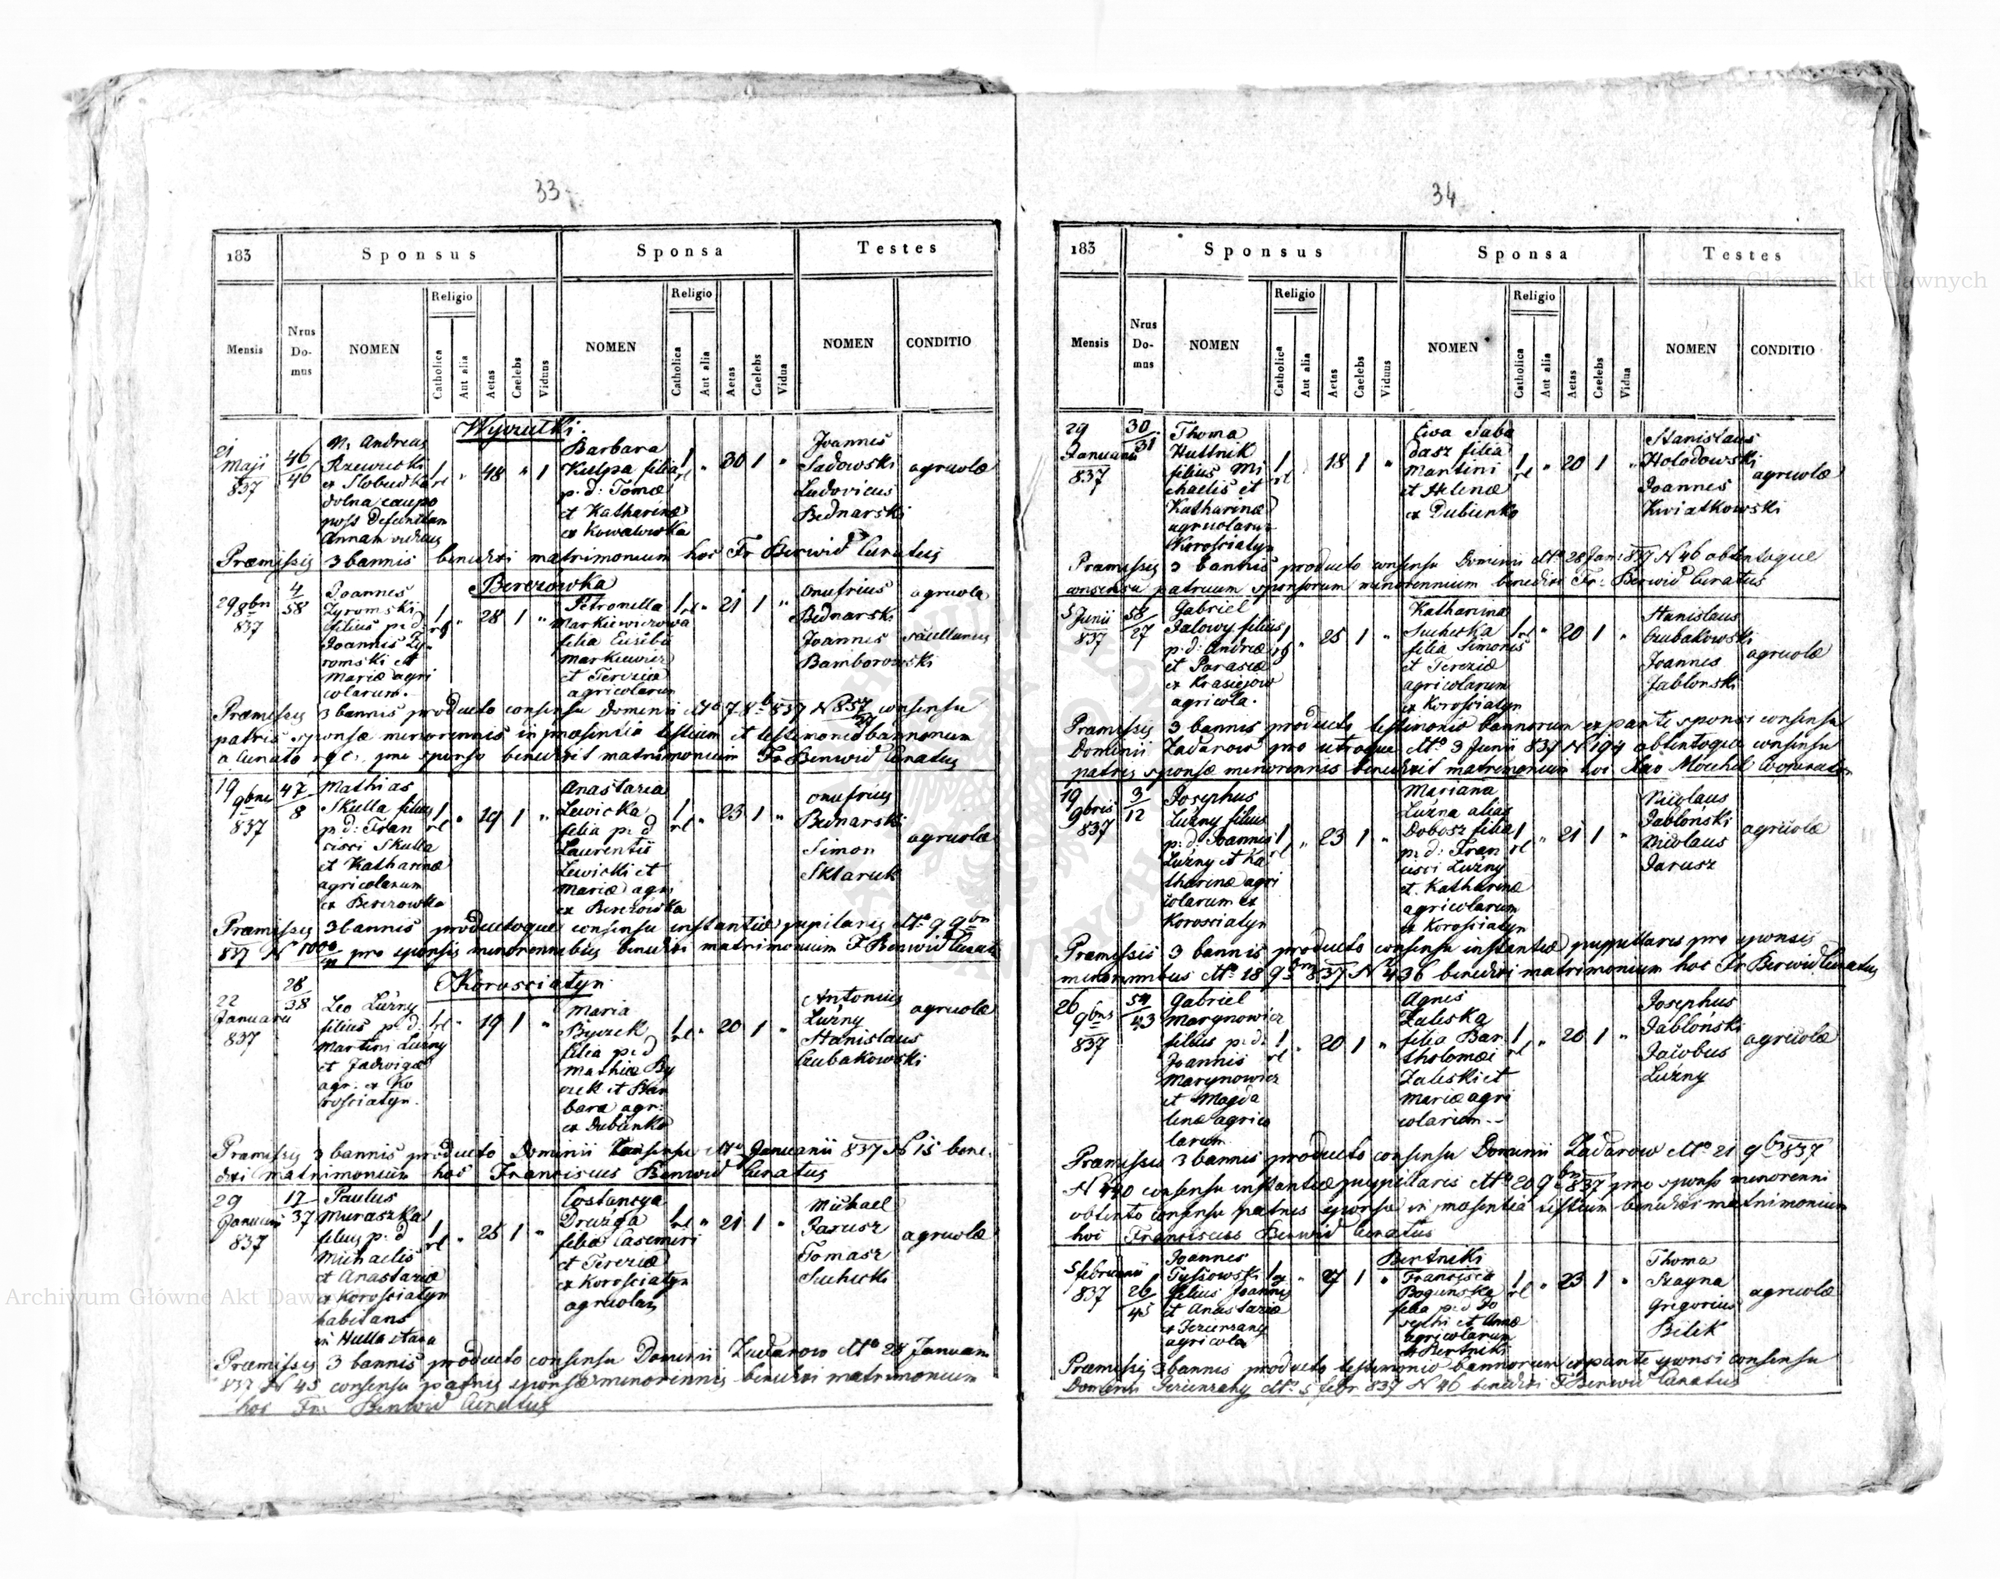 33
183
Sponsus
Sponsa
Testes
Mensis
Nrus Domus
NOMEN
Religio
Catholica
Aut alia
Aetas
Caelebs
Viduus
NOMEN
Religio
Catholica
Aut alia
Aetas
Caelebs
Vidua
NOMEN
CONDITIO
Wyczulki.
21 Maji 837
46
46
Andreas
ex Slobudka
dolna
Annam viduus
48 1
Barbara
Kulpa filia
p: d: Tomæ
et Katharinæ
ex Kowalowka
30 1
Joannes
Sadowski
Ludovicus
Bednarski
agricolæ
Præmissis 3 bannis benedixi matrimonium hoc Fr Berwid Curatus
Berezowka
29 8bri 837
4
58
Joannes
Zyromski
filius p: d:
Joannis Zy
romski et
Mariæ agri
colarum.
28 1
Petronella
Markiewiczowa
filia Eusebii
Markiewicz
et Tereziæ
agricolarum
21 1
Onufrius
Bednarski
Joannes
Bamborowski
agricola
Præmissis 3 bannis producto consensu Dominii consensu
patris sponsæ minorennis in præsentia testium et testimonio bannorum
a Curato pro sponso benedixit matrimonium Fr Berwid Curatus
19 9bris 837
47
8
Mathias
Skulla filius
p: d: Fran
cisci Skulla
et Katharinæ
agricolarum
ex Berezowka
19 1
Anastazia
Lewicka
filia p: d
Laurentii
Lewicki et
Mariæ agri
ex Berezowka
23 1
Onufrius
Bednarski
Simon
Sklaruk
agricolæ
Præmissis 3 bannis productoque consensu instantiæ pupilaris
837 N 1000 pro sponsis minorennibus benedixi matrimonium F Berwid Curatus
Korosciatyn
22 Januarii 837
28
38
Leo Luzny
filius p: d:
Martini Luzny
et Jadwigæ
agr: ex Ko
rosciatyn.
19 1
Maria
Byczek
filia p: d
Mathiæ By
czek et Bar
bara agr:
ex Dubienko
20 1
Antonius
Luzny
Stanislaus
Czubakowski
agricolæ
Præmissis 3 bannis producto Dominii Consensu Januarii 837 N 15 bene
dixi matrimonium hoc Franciscus Berwid Curatus
29 Januarii 837
17
37
Paulus
Muraszka
filius p: d
Michaelis
et Anastaziæ
ex Korosciatyn
habitans
in
25 1
Costancya
Druzga
filia Casimiri
et Tereziæ
ex Korosciatyn
agricolar
21 1
Michael
Jarusz
Tomasz
Suchecki
agricolæ
Præmissis 3 bannis producto consensu Dominii Zadarow 28 Januarii
837 N 45 consensu patris sponsæ minorennis benedixi matrimonium
hoc Fr: Berwid Curatus
34
183
Sponsus
Sponsa
Testes
Mensis
Nrus Domus
NOMEN
Religio
Catholica
Aut alia
Aetas
Caelebs
Viduus
NOMEN
Religio
Catholica
Aut alia
Aetas
Caelebs
Vidua
NOMEN
CONDITIO
29 Januarii 837
30
31
Thoma
Huttnik
filius Mi
chaelis et
Katharinæ
agricolarum
Korosciatyn
18 1
Ewa Saba
dasz filia
Martini
et Helenæ
ex Dubienko
20 1
Stanislaus
Holodowski
Joannes
Kwiatkowski
agricolæ
Præmissis 3 bannis producto consensu Dominii 28 Jan: 837 N 46 obtentoque
consensu patruum sponsorum minorennium benedixi Fr: Berwid Curatus
5 Junii 837
58
27
Gabriel
Jalowy filius
p: d: Andreæ
et Parasiæ
ex Krasiejow
agricola.
25 1
Katharina
Suchecka
filia Simonis
et Tereziæ
agricolarum
ex Korosciatyn
20 1
Stanislaus
Czubakowski
Joannes
Jablonski
agricolæ
Præmissis 3 bannis producto testimonio bannorum ex parte sponsi consensu
Dominii Zadarow pro utroque 3 Junii 837 N 194 obtentoque consensu
patris sponsæ minorennis benedixit matrimonium hoc Cooperator
19 9bris 837
3
12
Josephus
Luzny filius
p: d: Joannis
Luzny et Ka
tharinæ agri
colarum ex
Korosciatyn
23 1
Mariana
Luzna alias
Dobosz filia
p: d: Fran
cisci Luzny
et Katharinæ
agricolarum
ex Korosciatyn
21 1
Nicolaus
Jablonski
Nicolaus
Jarusz
agricolæ
Præmissis 3 bannis producto consensu instantiæ puppillaris pro sponsis
minorennibus 18 9bris 837 N 436 benedixi matrimonium hoc Fr Berwid Curatus
26 9bris 837
54
43
Gabriel
Marynowicz
filius p: d:
Joannis
Marynowicz
et Magda
lenæ agrico
larum
20 1
Agnes
Zaleska
filia Bar
tholomæi
Zaleski et
Mariæ agri
colarum
20 1
Josephus
Jabloński
Jacobus
Luzny
agricolæ
Præmissis 3 bannis producto consensu Dominii Zadarow 21 9bris 837
N 440 consensu instantiæ puppillaris 20 9bris 837 pro sponso minorenni
obtento consensu patris sponsæ in præsentia testium benedixi matrimonium
hoc Franciscus Berwid Curatus
Bertniki
5 februarii 837
26
45
Joannes
Tysiowski
filius Joannis
et Anastaziæ
ex Jezierzany
agricola
27 1
Francisca
Bogunska
filia p: d Jo
sephi et Annæ
agricolarum
ex Bertniki
23 1
Thoma
Szayna
Gregorius
Bilik
agricolæ
Præmissis 3 bannis producto testimonio bannorum ex parte sponsi consensu
Dominii Jezierzany 5 febr 837 N 46 benedixi F Berwid Curatus
Archiwum Główne Akt Dawnych
Archiwum Główne Akt Dawnych